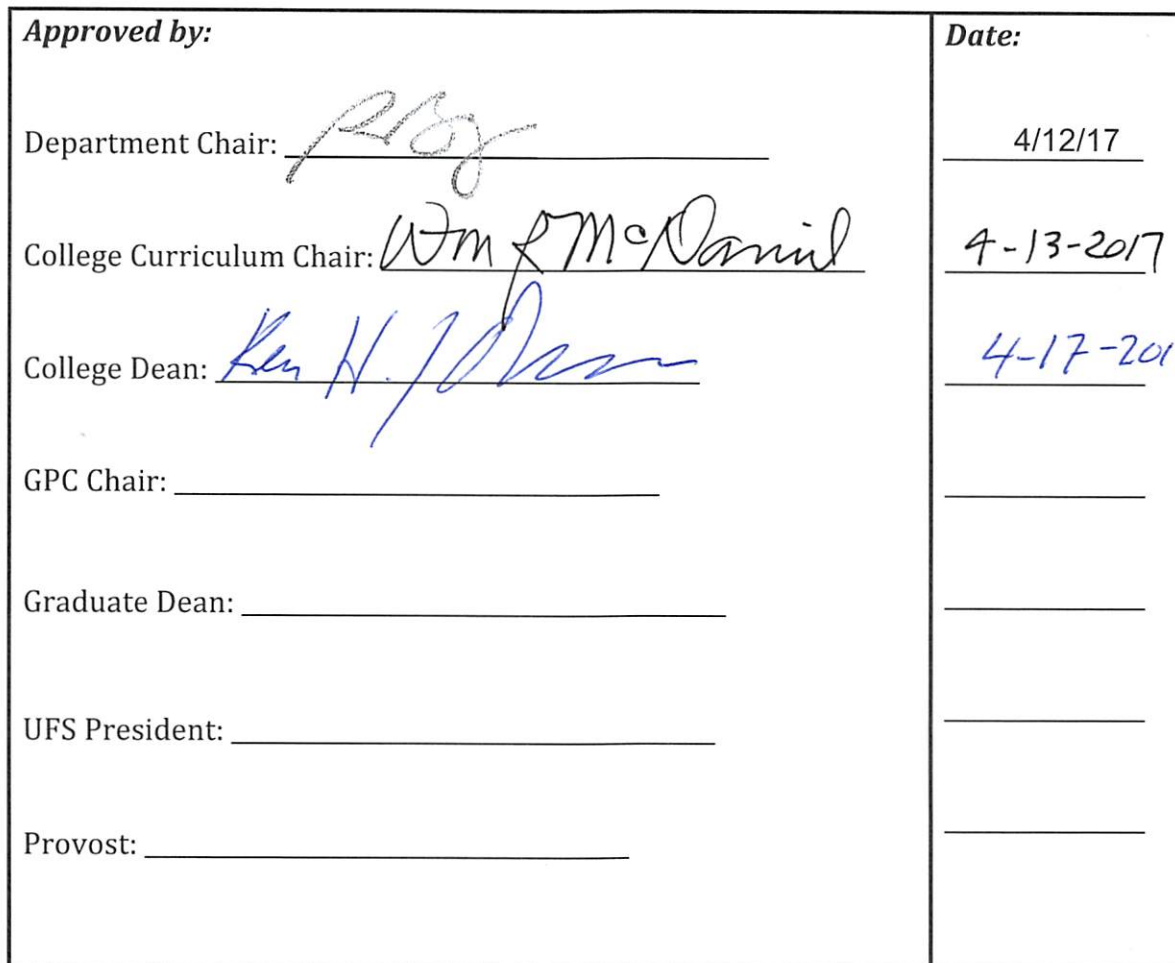 Approved by: Date:
Department Chair: 4/12/17
College Curriculum Chair: Wm McDaniel 4-13-2017
College Dean: Ken H. 4-17-201
GPC Chair:
Graduate Dean:
UFS President:
Provost: